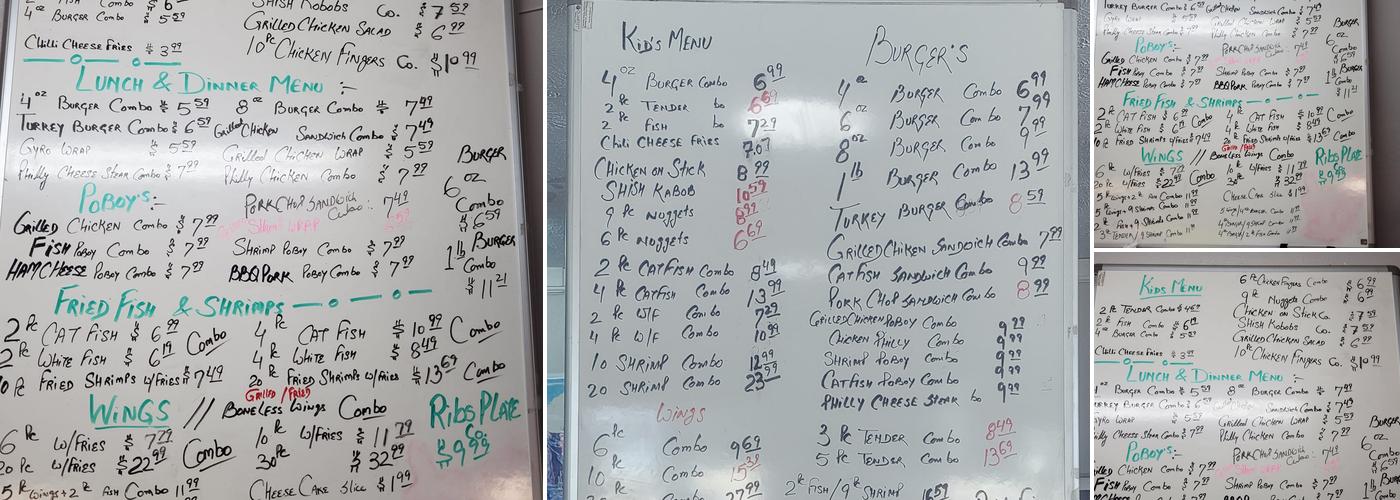 4 oz Burger Combo $5 59
Chilli Cheese Fries $3 99
Shish Kobobs Co. $7 59
Grilled Chicken Salad $6 99
10 Pc Chicken Fingers Co. $10 99
Lunch & Dinner Menu :-
4 oz Burger Combo $5 59 8 oz Burger Combo $7 49
Turkey Burger Combo $6 59 Grilled Chicken Sandwich Combo $7 49
Gyro Wrap $5 59 Grilled Chicken Wrap $5 59
Philly Cheese Steak Combo $7 99 Philly Chicken Combo $7 99
PoBoy's:- Pork Chop Sandwich Combo: 7 49
Grilled Chicken Combo $7 99 Shrimp Wrap
Fish PoBoy Combo $7 99 Shrimp PoBoy Combo $7 99
Ham Cheese PoBoy Combo $7 99 BBQ Pork PoBoy Combo $7 99
Burger
6 oz
Combo
$6 59
1 lb Burger
Combo
$11 21
Fried Fish & Shrimps
2 Pc Cat Fish $6 99 Combo 4 Pc Cat Fish $10 99 Combo
2 Pc White Fish $6 19 4 Pc White Fish $8 49
10 Pc Fried Shrimps w/Fries $7 49 20 Pc Fried Shrimps w/Fries $13 69 Combo
Grilled/Fried
Wings // Boneless Wings Combo Ribs Plate
6 Pc w/Fries $7 79 Combo 10 Pc w/Fries $11 79 Co. $9 99
20 Pc w/Fries $22 99 30 Pc $32 99
5 Pc Wings + 2 Pc Fish Combo 11 99 Cheese Cake Slice $1 99
Kid's Menu
4 oz Burger Combo 6 99
2 Pc Tender bo 6 69
2 Pc Fish bo 7 29
Chili Cheese Fries 7 07
Chicken on Stick 8 99
Shish Kabob 10 59
9 Pc Nuggets 8 99
6 Pc Nuggets 6 69
2 Pc CatFish Combo 8 49
4 Pc CatFish Combo 13 99
2 Pc W/F Combo 7 29
4 Pc W/F Combo 10 99
10 Shrimp Combo 12 99
20 Shrimp Combo 23 59
Wings
6 Pc Combo 9 69
10 Pc Combo 15 39
Combo 27 99
Burger's
4 oz Burger Combo 6 99
6 oz Burger Combo 7 99
8 oz Burger Combo 9 99
1 lb Burger Combo 13 99
Turkey Burger Combo 8 59
Grilled Chiken Sandwich Combo 7 99
CatFish Sandwich Combo 9 99
Pork Chop Sandwich Combo 8 99
Grilled Chicken PoBoy Combo
Chicken Philly Combo 9 99
Shrimp PoBoy Combo 9 99
CatFish PoBoy Combo 9 99
Philly Cheese Steak bo 9 99
3 Pc Tender Combo 8 49
5 Pc Tender Combo 13 69
2 Pc Fish/9 Pc Shrimp 16 59
Turkey Burger Combo $6 59 Grilled Chicken Sandwich Combo $7 49
Gyro Wrap $5 59 Grilled Chicken Wrap $5 59
Philly Cheese Steak Combo $7 99 Philly Chicken Combo $7 99
PoBoy's:- Pork Chop Sandwich Combo: 7 49
Grilled Chicken Combo $7 99
Fish PoBoy Combo $7 99 Shrimp PoBoy Combo $7 99
Ham Cheese PoBoy Combo $7 99 BBQ Pork PoBoy Combo $7 99
Burger
6 oz
Combo
$6 59
1 lb Burger
Combo
$11 21
Fried Fish & Shrimps
2 Pc Cat Fish $6 99 4 Pc Cat Fish $10 99
2 Pc White Fish $6 19 Combo 4 Pc White Fish $8 49
Fried Shrimps w/Fries $7 49 20 Pc Fried Shrimps w/Fries $13 69 Combo
Grilled/Fried
Wings // Boneless Wings Combo Ribs Plate
6 Pc w/Fries $7 79 10 Pc w/Fries $11 79 $9 99
20 Pc w/Fries $22 99 Combo 30 Pc $32 99
Cheese Cake Slice $1 99
Kids Menu
2 Pc Tender Combo
2 Pc Fish Combo $6 19
4 oz Burger Combo $5 59
Chilli Cheese Fries $3 99
6 Pc Chicken Fingers Combo $6 99
9 Pc Nuggets Combo $6 99
Chicken on Stick Co.
Shish Kobobs Co. $7 59
Grilled Chicken Salad $6 99
10 Pc Chicken Fingers Co. $10 99
Lunch & Dinner Menu :-
4 oz Burger Combo $5 59 8 oz Burger Combo $7 49
Turkey Burger Combo $6 59 Sandwich Combo $7 49
Gyro Wrap $5 59 Grilled Chicken Wrap $5 59
Philly Cheese Steak Combo $7 99 Philly Chicken Combo $7 99
PoBoy's:- Pork Chop Sandwich Combo: 7 49
Grilled Chicken Combo $7 99
Fish PoBoy Combo $7 99 Shrimp PoBoy Combo $7 99
Ham Cheese PoBoy Combo $7 99 BBQ Pork PoBoy Combo $7 99
Burger
6 oz
Combo
$6 59